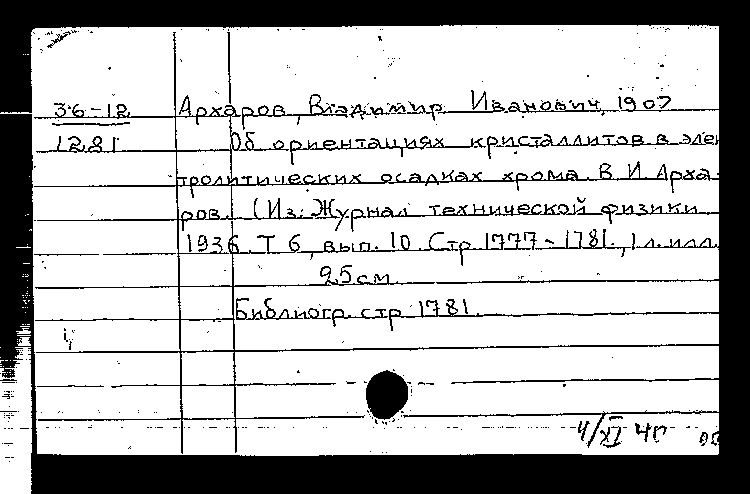 36-12 Архаров, Владимир Иванович, 1907
1221 Об ориентациях кристаллитов в элек
тролитических осадках хрома. В. И. Арха-
ров. (Из: Журнал технической физики
1936. Т 6, вып. 10. Стр 1777-1781., 1 л. илл.
25 см
Библиогр. стр 1781.
4/XI 40